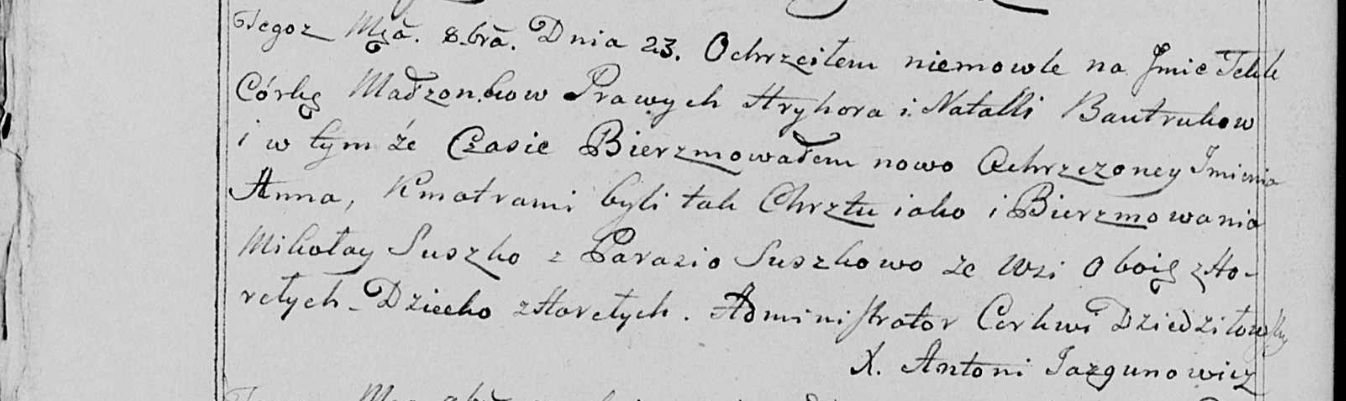 Tegoż Mca. 8bra. Dnia 23. Ochrzciłem niemowle na Jmie Tekle
Córkę Małżonkow Prawych Hryhora i Natalli Bautrukow
i w tym że Czasie Bierzmowałem nowo Ochrzczoney Jmienia
Anna, Kmotrami byli tak Chrztu iako i Bierzmowania
Mikołay Suszko z Parasio Suszkowo ze Wsi Oboię z Ho-
retych. Dziecko z Horetych. Administrator Cerkwi Dziedziłowsky
X. Antoni Jazgunowicz